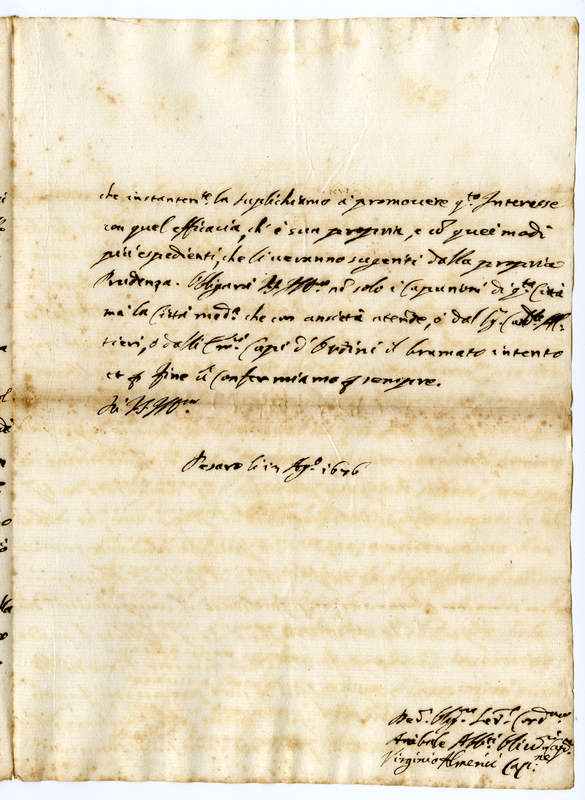 che instantem.te la suplichiamo à promouere q.to Interesse
con quel efficacia, ch' è sua propria, e cõ quei modi
più espedienti, che li ueranno sugeriti dalla propria
Prudenza. Obligarà V.S. Ill.ma nõ solo i Capuccini di q.ta Città
mà la Città med.a che con ansietà atende, ò dal Sig.
tieri, ò dalli Capi d'Ordini il bramato intento
et p fine ci confermiamo p sempre.
Di V.S. Ill.ma
Pesaro li 17 Ag.o 1676
Annibale Abb.ti
Virginio Almerici Cap.ne